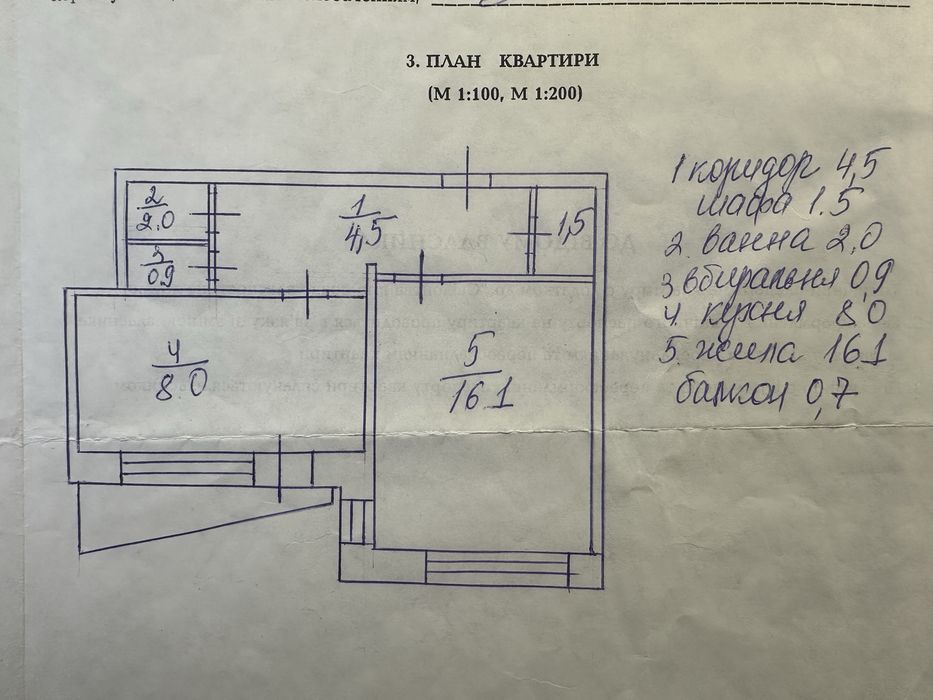 3. ПЛАН КВАРТИРИ
(М 1:100, М 1:200)
1 коридор 4,5
шафа 1.5
2. ванна 2,0
3 вбиральня 0,9
4. кухня 8,0
5. жила 16.1
балкон 0,7
2
2.0
3
0,9
1
4,5
1,5
4
8.0
5
16.1